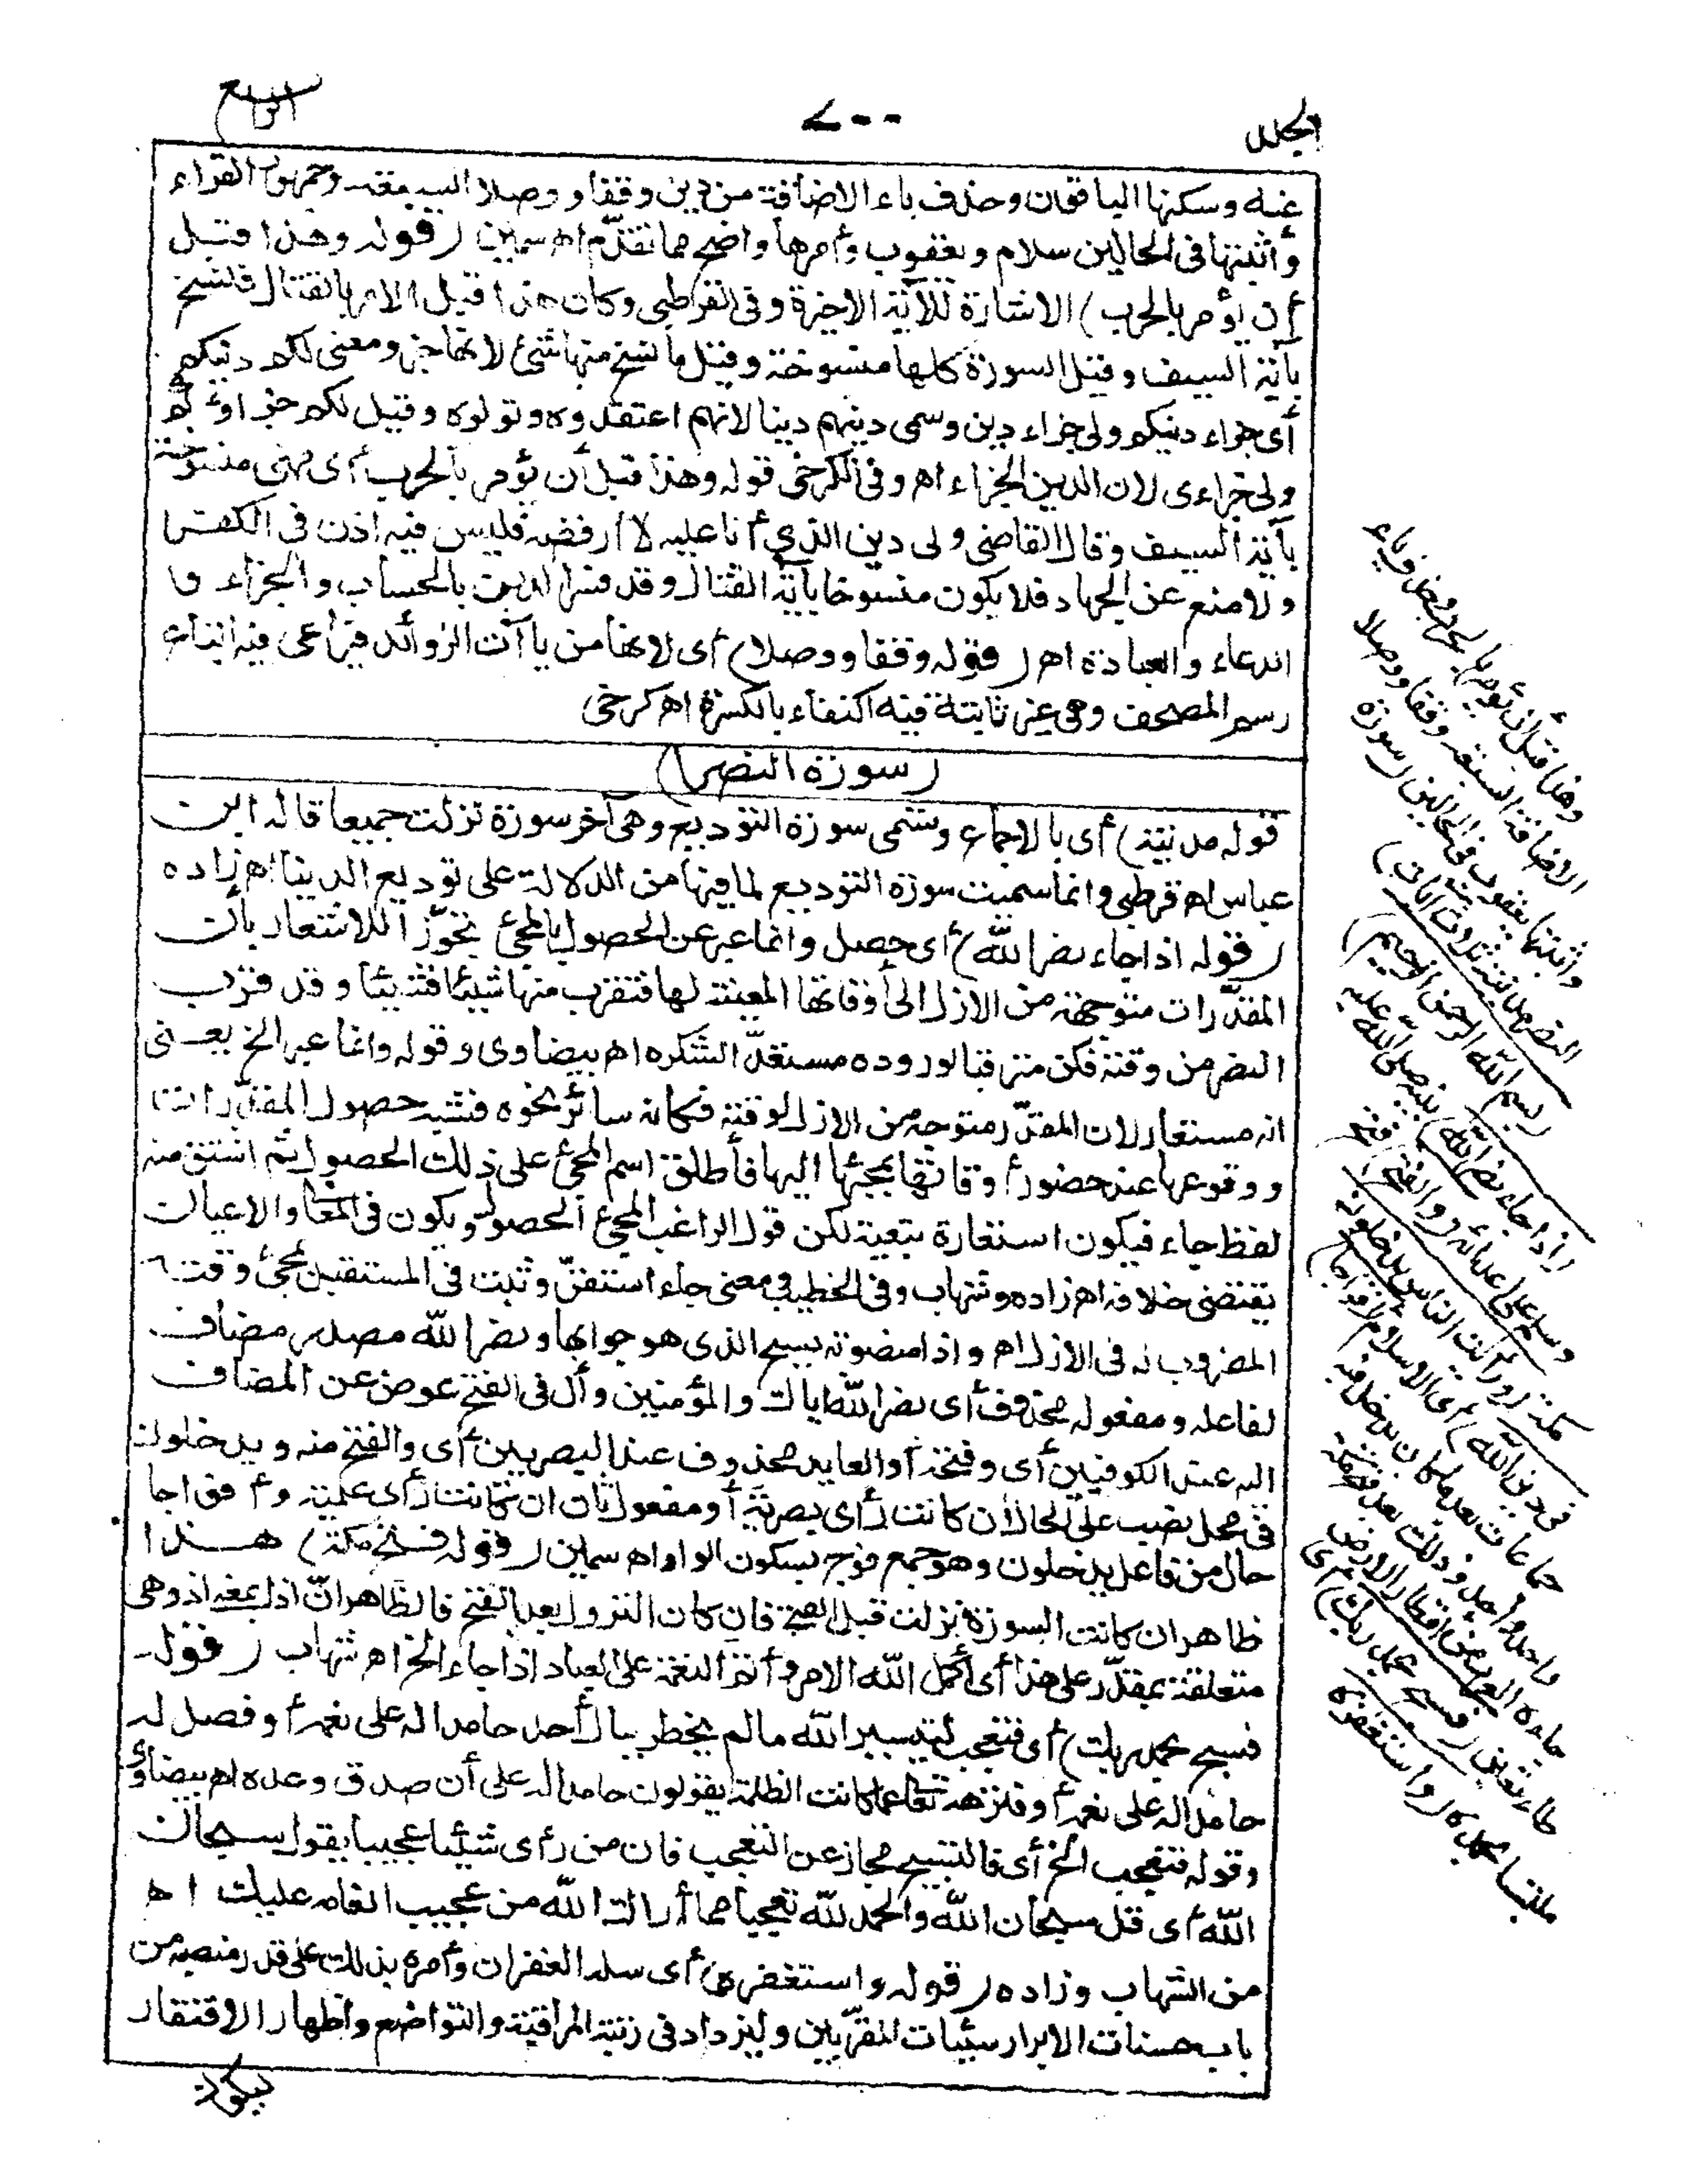 الجلد
٧٠٠
الرابع
عنه وسكنها الباقون وحذف ياء الاضافة من دين وقفا ووصلا السبعة وجمهور القراء
وأثبتها في الحالين سلام ويعقوب وأمرها واضح مما تقدّم اه سمين (قوله وهذا قبل
أن يؤمر بالحرب) الاشارة للآية الاخيرة وفي القرطبي وكان هذا قبل الامر بالقتال فنسخ
بآية السيف وقيل السورة كلها منسوخة وقيل ما نسخ منها شئ لانها خبر ومعنى لكم دينكم
أى جزاء دينكم ولى جزاء دين وسمى دينهم دينا لانهم اعتقدوه وتولوه وقيل لكم جزاؤكم
ولى جزاءى لان الدين الجزاء اه وفى الكرخى قوله وهذا قبل أن يؤمر بالحرب أى فهى منسوخة
بآية السيف وقال القاضى ولى دين الذى أنا عليه لا أرفضه فليس فيه اذن فى الكفر
ولا منع عن الجهاد فلا يكون منسوخا بآية القتال وقد فسر الدين بالحساب والجزاء و
الدعاء والعبادة اه (قوله وقفا ووصلا) أى لانها من ياآت الزوائد فيراعى فيه اتباع
رسم المصحف وهى غير ثابتة فيه اكتفاء بالكسرة اه كرخى
(سورة النصر)
قوله مدنية) أى بالاجماع وتسمى سورة التوديع وهى آخر سورة نزلت جميعا قاله ابن
عباس اه قرطبى وانما سميت سورة التوديع لما فيها من الدلالة على توديع الدينا اه زاده
(قوله اذا جاء نصر الله) أى حصل وانما عبر عن الحصول بالمجئ تجوّزا للاشعار بأن
المقدّرات متوجهة من الازل الى أوقاتها المعينة لها فتقرب منها شيئا فشيئا وقد قرب
النصر من وقته فكن مترقبا لوروده مستعدّا لشكره اه بيضاوى وقوله وانما عبر الخ يعنى
انه مستعار لان المقدّر متوجه من الازل لوقته فكانه سائر نحوه فشبه حصول المقدّرات
ووقوعها عند حضور أوقاتها بمجئها اليها فأطلق اسم المجئ على ذلك الحصول ثم اشتق منه
لفظ جاء فيكون استعارة تبعية لكن قول الراغب المجئ الحصول ويكون فى المعانى والاعيان
يقتضى خلافه اه زاده وشهاب وفى الخطيب ومعنى جاء استقرّ وثبت فى المستقبل بمجئ وقته
المضروب له فى الازل اه واذا منصوبة بسبح الذى هو جوابها ونصر الله مصدر مضاف
لفاعله ومفعوله محذوف أى نصر الله اياك والمؤمنين وأل فى الفتح عوض عن المضاف
اليه عند الكوفيين أى وفتحه أو العايد محذوف عند البصريين أى والفتح منه ويدخلون
فى محل نصب على الحال ان كانت رأى بصرية أو مفعول ثان ان كانت رأى علمية وأفواجا
حال من فاعل يدخلون وهو جمع فوج بسكون الواو اه سمين (قوله فتح مكة) هذا
ظاهر ان كانت السورة نزلت قبل الفتح فان كان النزول بعد الفتح فالظاهر انّ اذا بمعنى اذ وهى
متعلقة بمقدّر على هذا أى أكمل الله الامر وأتم النعمة على العباد اذا جاء الخ اه شهاب (قوله
فسبح بحمد ربك) أى فتعجب لتيسير الله مالم يخطر ببال أحد حامدا له على نعمه أو فصل له
حامدا له على نعمه أو فنزهه تعالى عما كانت الظلمة يقولون حامدا له على أن صدق وعده اه بيضاوى
وقوله فتعجب الخ أى فالتسبيح مجاز عن التعجب فان من رأى شيئا عجيبا يقول سبحان
الله أى قل سبحان الله والحمد لله تعجيبا مما أراك الله من عجيب انعامه عليك اه
من الشهاب وزاده (قوله واستغفره) أى سله الغفران وأمره بذلك على قدر منصبه من
باب حسنات الابرار سيئات المقرّبين وليزداد فى رتبة المراقبة والتواضع واظهار الافتقار
ليكون
وهذا قبل أن يؤمر بالحرب وحذف ياء
الاضافة السبعة وقفا ووصلا
وأثبتها يعقوب فى الحالين (سورة
النصر مدنية ثلاث آيات)
(بسم الله الرحمن الرحيم)
(اذا جاء نصر الله) نبيه صلى الله عليه
وسلم على أعدائه (والفتح) فتح
مكة (ورأيت الناس يدخلون
فى دين الله) أى الاسلام (أفواجا)
جماعات بعد ما كان يدخل فيه
واحد واحد وذلك بعد فتح مكة
جاءه العرب من أقطار الارض
طائعين (فسبح بحمد ربك) أى
ملتبسا بحمده (واستغفره